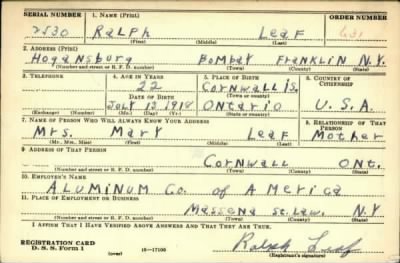 SERIAL NUMBER 1. NAME (Print) ORDER NUMBER
2530 RALPH LEAF 631
(First) (Middle) (Last)
2. ADDRESS (Print)
Hogansburg Bombay Franklin N.Y.
(Number and street or R. F. D. number) (Town) (County) (State)
3. TELEPHONE 4. AGE IN YEARS 5. PLACE OF BIRTH 6. COUNTRY OF CITIZENSHIP
22 Cornwall Is.
DATE OF BIRTH (Town or county)
July 13 1918 Ontario U.S.A.
(Exchange) (Number) (Mo.) (Day) (Yr.) (State or country)
7. NAME OF PERSON WHO WILL ALWAYS KNOW YOUR ADDRESS 8. RELATIONSHIP OF THAT PERSON
Mrs. Mary Leaf Mother
(Mr., Mrs., Miss) (First) (Middle) (Last)
9. ADDRESS OF THAT PERSON
Cornwall Ont.
(Number and street or R. F. D. number) (Town) (County) (State)
10. EMPLOYER'S NAME
Aluminum Co. of America
11. PLACE OF EMPLOYMENT OR BUSINESS
Massena St. Law. N.Y
(Number and street or R. F. D. number) (Town) (County) (State)
I AFFIRM THAT I HAVE VERIFIED ABOVE ANSWERS AND THAT THEY ARE TRUE.
REGISTRATION CARD
D. S. S. Form 1 (over) 16—17105 Ralph Leaf
(Registrant's signature)